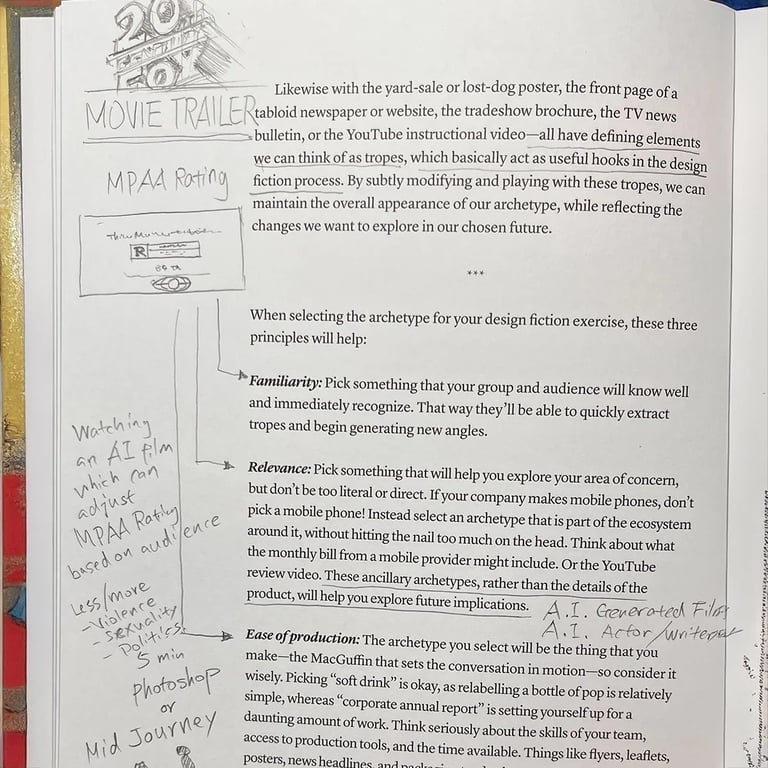 20th
CENTURY
FOX
MOVIE TRAILER
MPAA Rating
R
Likewise with the yard-sale or lost-dog poster, the front page of a
tabloid newspaper or website, the tradeshow brochure, the TV news
bulletin, or the YouTube instructional video—all have defining elements
we can think of as tropes, which basically act as useful hooks in the design
fiction process. By subtly modifying and playing with these tropes, we can
maintain the overall appearance of our archetype, while reflecting the
changes we want to explore in our chosen future.
***
When selecting the archetype for your design fiction exercise, these three
principles will help:
Familiarity: Pick something that your group and audience will know well
and immediately recognize. That way they'll be able to quickly extract
tropes and begin generating new angles.
Relevance: Pick something that will help you explore your area of concern,
but don't be too literal or direct. If your company makes mobile phones, don't
pick a mobile phone! Instead select an archetype that is part of the ecosystem
around it, without hitting the nail too much on the head. Think about what
the monthly bill from a mobile provider might include. Or the YouTube
review video. These ancillary archetypes, rather than the details of the
product, will help you explore future implications.
A.I. Generated Film
A.I. Actor/Writer
Ease of production: The archetype you select will be the thing that you
make—the MacGuffin that sets the conversation in motion—so consider it
wisely. Picking “soft drink” is okay, as relabelling a bottle of pop is relatively
simple, whereas “corporate annual report” is setting yourself up for a
daunting amount of work. Think seriously about the skills of your team,
access to production tools, and the time available. Things like flyers, leaflets,
posters, news headlines, and
Watching
an AI film
which can
adjust
MPAA Rating
based on audience
Less/more
- Violence
- Sexuality
- Politics
5 min
Photoshop
or
Mid Journey